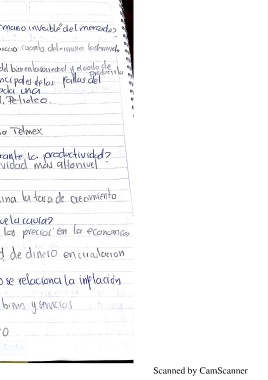 mano invisible" del mercado?
cuanto del mismo lo demanda
del bien en la sociedad y el costo de producirlo
ncipales de las fallas del
ada una
l, Petroleo.
o Telmex
rante, la productividad?
vidad más alto nivel
ina la tasa de crecimiento
ue la causa?
los precios en la economía
d de dinero en circulación
o se relaciona la inflación
bienes y servicios
o
Scanned by CamScanner